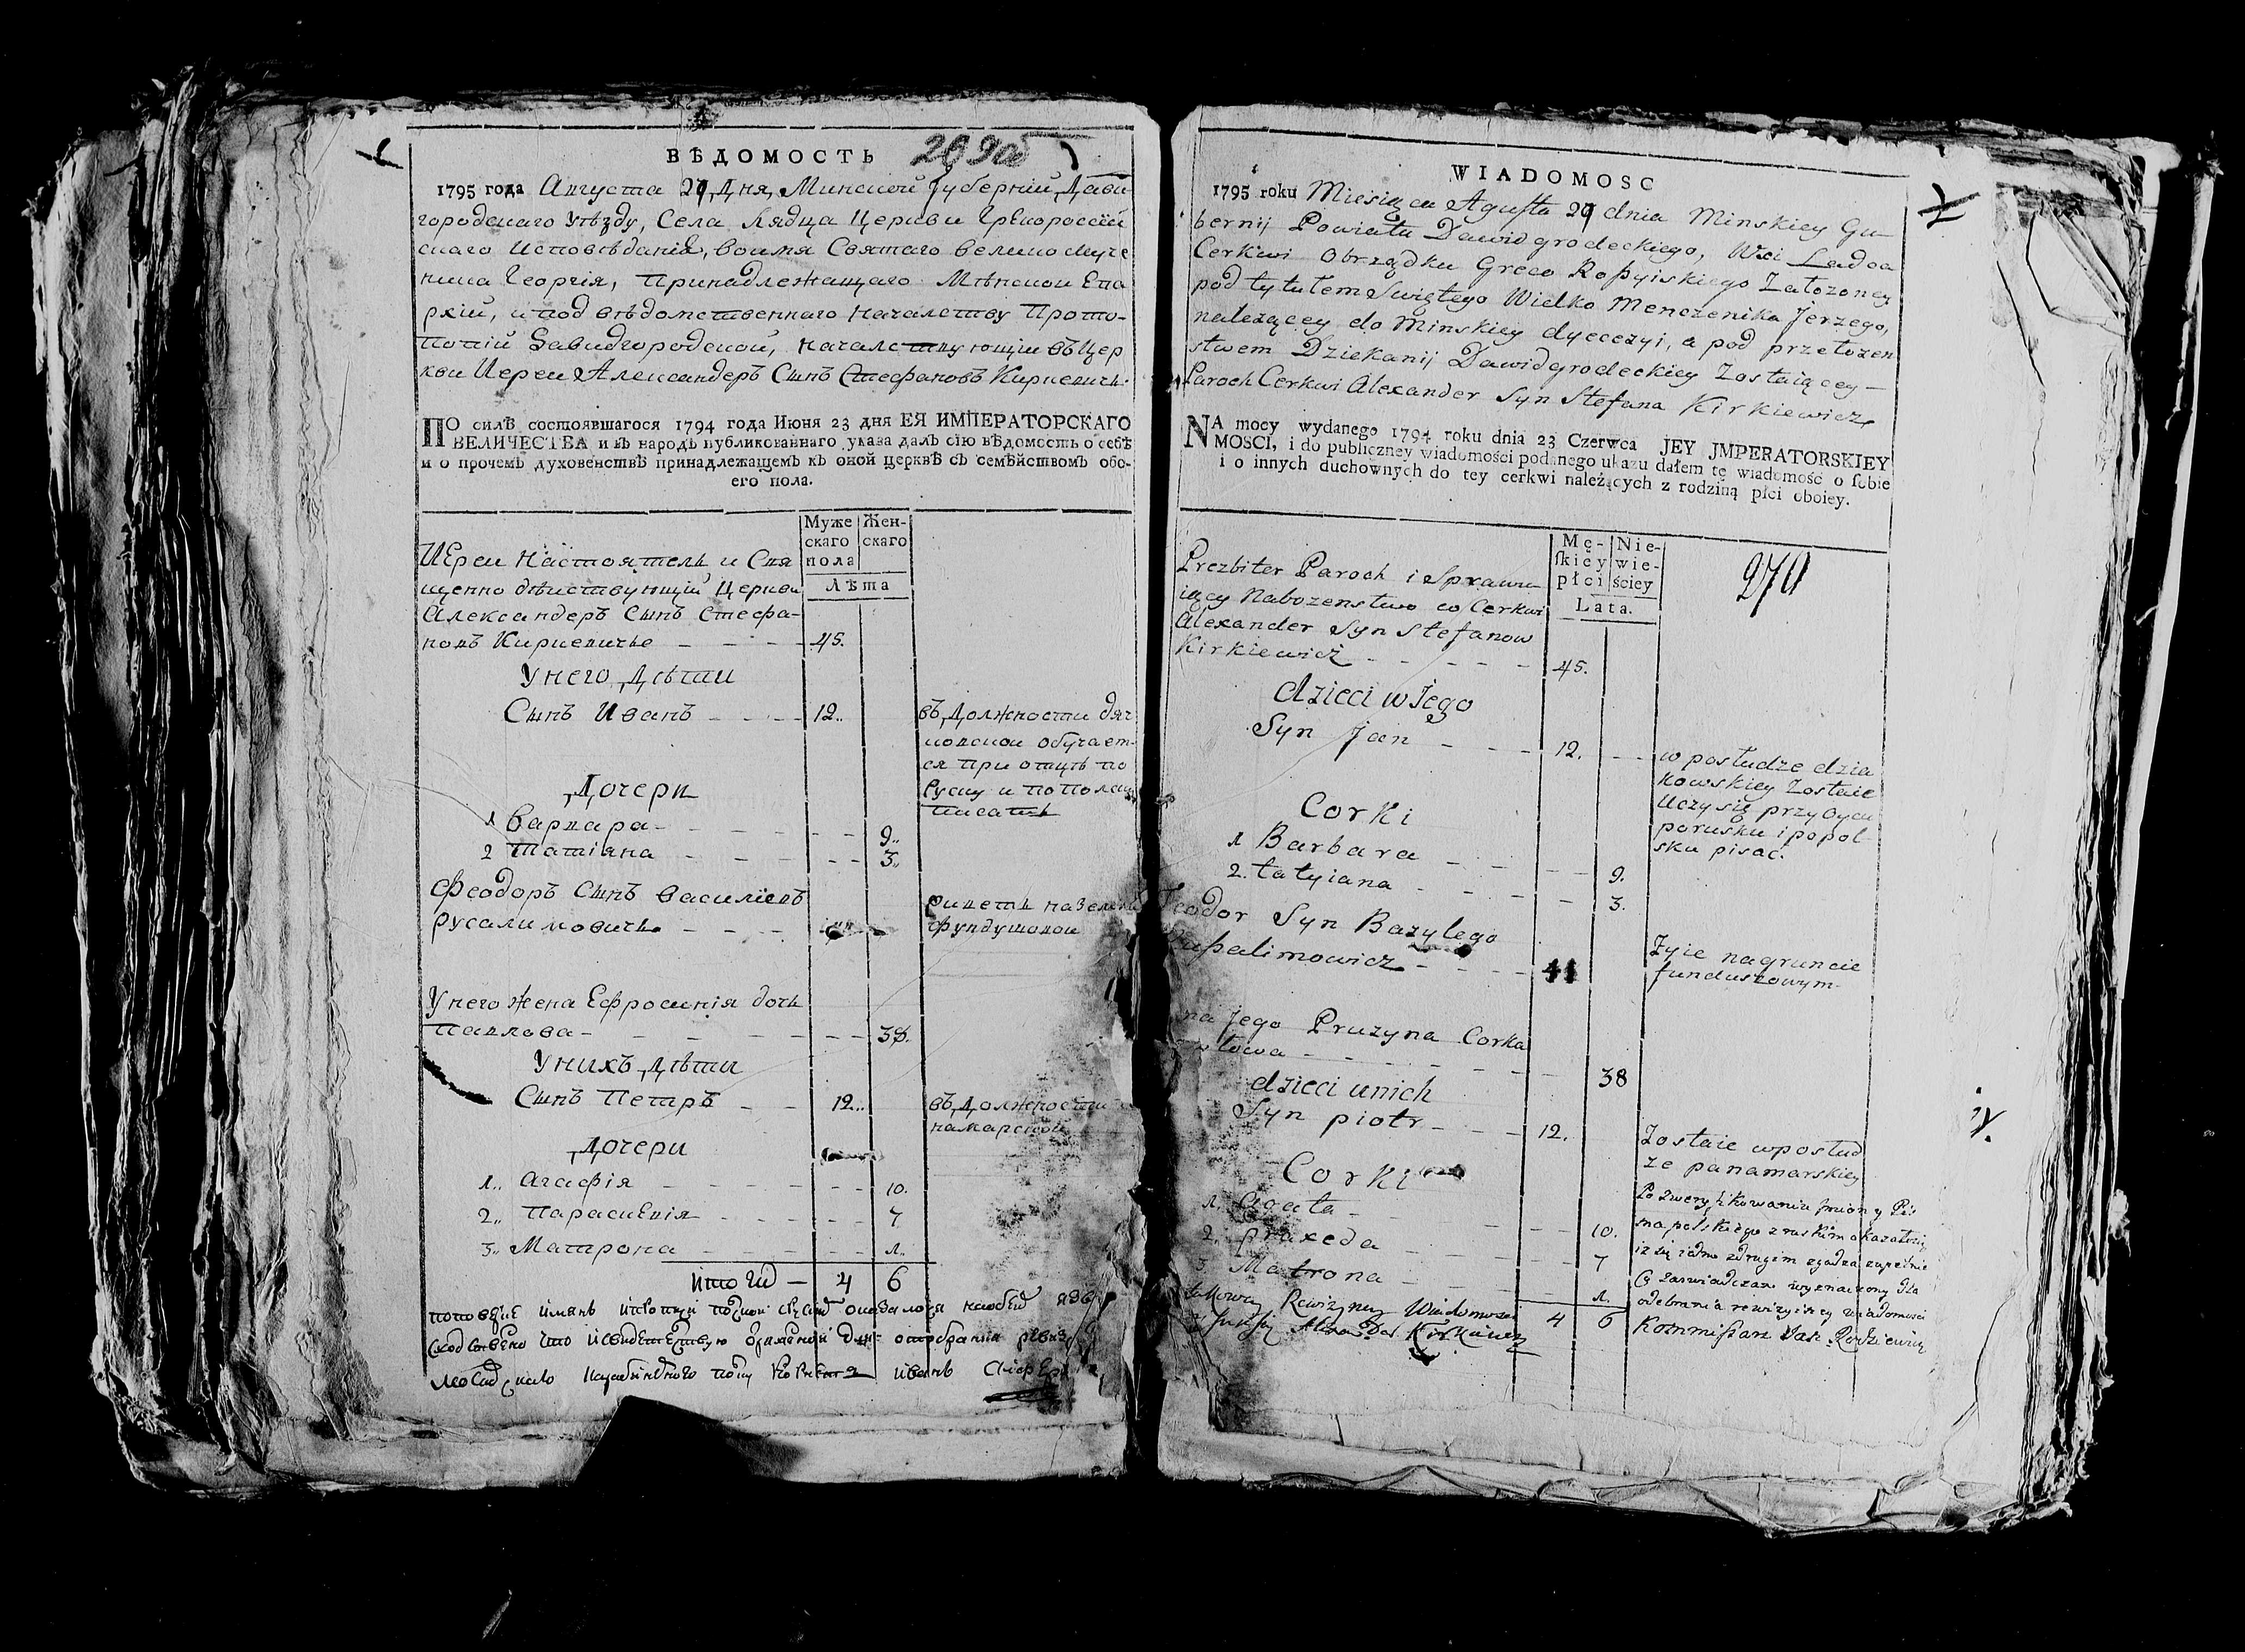 ВѢДОМОСТЬ 269об
1795 года Августа 27 Дня, Минской Губернїи, Дави
городскаго уѣзду, Села Лядца Церкви Грекороссїй
скаго Исповѣданїя, во имя Святаго великомуче
ника Георгїя, принадлежащаго Мѣнской Епа
рхїи, и под вѣдомственнаго началству Прото-
попїи Давидгородской, началствующїи въ Цер
кви Иереи Александеръ Сынъ Стефановъ Киркевичъ.
ПО силѣ состоявшагося 1794 года Июня 23 дня ЕЯ ИМПЕРАТОРСКАГО
ВЕЛИЧЕСТВА и въ народъ публикованнаго указа далъ сїю вѣдомость о себѣ
и о прочемъ духовенствѣ принадлежащемъ къ оной церквѣ съ семѣйствомъ обо-
его пола.
Муже Жен-
скаго скаго
пола
Лѣта
Иереи Настоятель и Свя
щенно дѣиствующїй Церкви
Александеръ Сынъ Стефа-
новъ Киркевичъ - - - 45.
У него Дѣти
Сынъ Иванъ - - - 12.. въ Должности дяч
ковской обучает-
ся при отцѣ по
Руску и по полску
писать
Дочери
1 Варвара - - - 9..
2 Татїяна - - - 3..
Феодоръ Сынъ Василїевъ
русалимовичъ - - -
живетъ на земли
фундушовои
У него жена Ефросинїя дочь
Павлова - - - 38.
У нихъ Дѣти
Сынъ Петръ - - 12.. въ Должности
намарской
Дочери
1.. Агафїя - - - 10.
2.. Параскевїя - - - 7
3.. Матрона - - - 1..
итого - 4 6
WIADOMOSC
1795 roku Miesiąca Agusta 27 dnia Minskiey Gu-
bernij Powiatu Dawidgrodeckiego, Wsi Ladca
Cerkwi Obrządku Greco Roßyiskiego Załozoney
pod tytułem Swiętego Wielko Menczenika Jerzego,
nalezącey do Minskiey dyecezyi, a pod przełozen
stwem Dziekanij Dawidgrodeckiey Zostaiącey -
Paroch Cerkwi Alexander Syn Stefana Kirkiewicz
NA mocy wydanego 1794 roku dnia 23 Czerwca JEY JMPERATORSKIEY
MOSCI, i do publiczney wiadomości podanego ukazu dałem tę wiadomość o sobie
i o innych duchownych do tey cerkwi należących z rodziną płci oboiey.
Mę- Nie-
skiey wie-
płci ściey
Lata.
270
Prezbiter Paroch i Sprawu-
iący Nabozenstwo w Cerkwi
Alexander Syn Stefanow
Kirkiewicz - - - 45.
dzieci w Jego
Syn Jan - - - 12. w posłudze dzia
kowskiey Zostaie
Uczy się przy Oycu
porusku i popol-
sku pisac.
Corki
1 Barbara - - - 9.
2. tatyiana - - - 3.
Teodor Syn Bazylego
Rußalimowicz - - - 41 Zyie na gruncie
funduszowym
na Jego Pruzyna Corka
włowa - - - 38
dzieci u nich
Syn piotr - - - 12. Zostaie w posłud
ze panamarskiey
Corki
1. Agata - - - 10.
2. praxeda - - - 7
3 Matrona - - - 1.
4 6